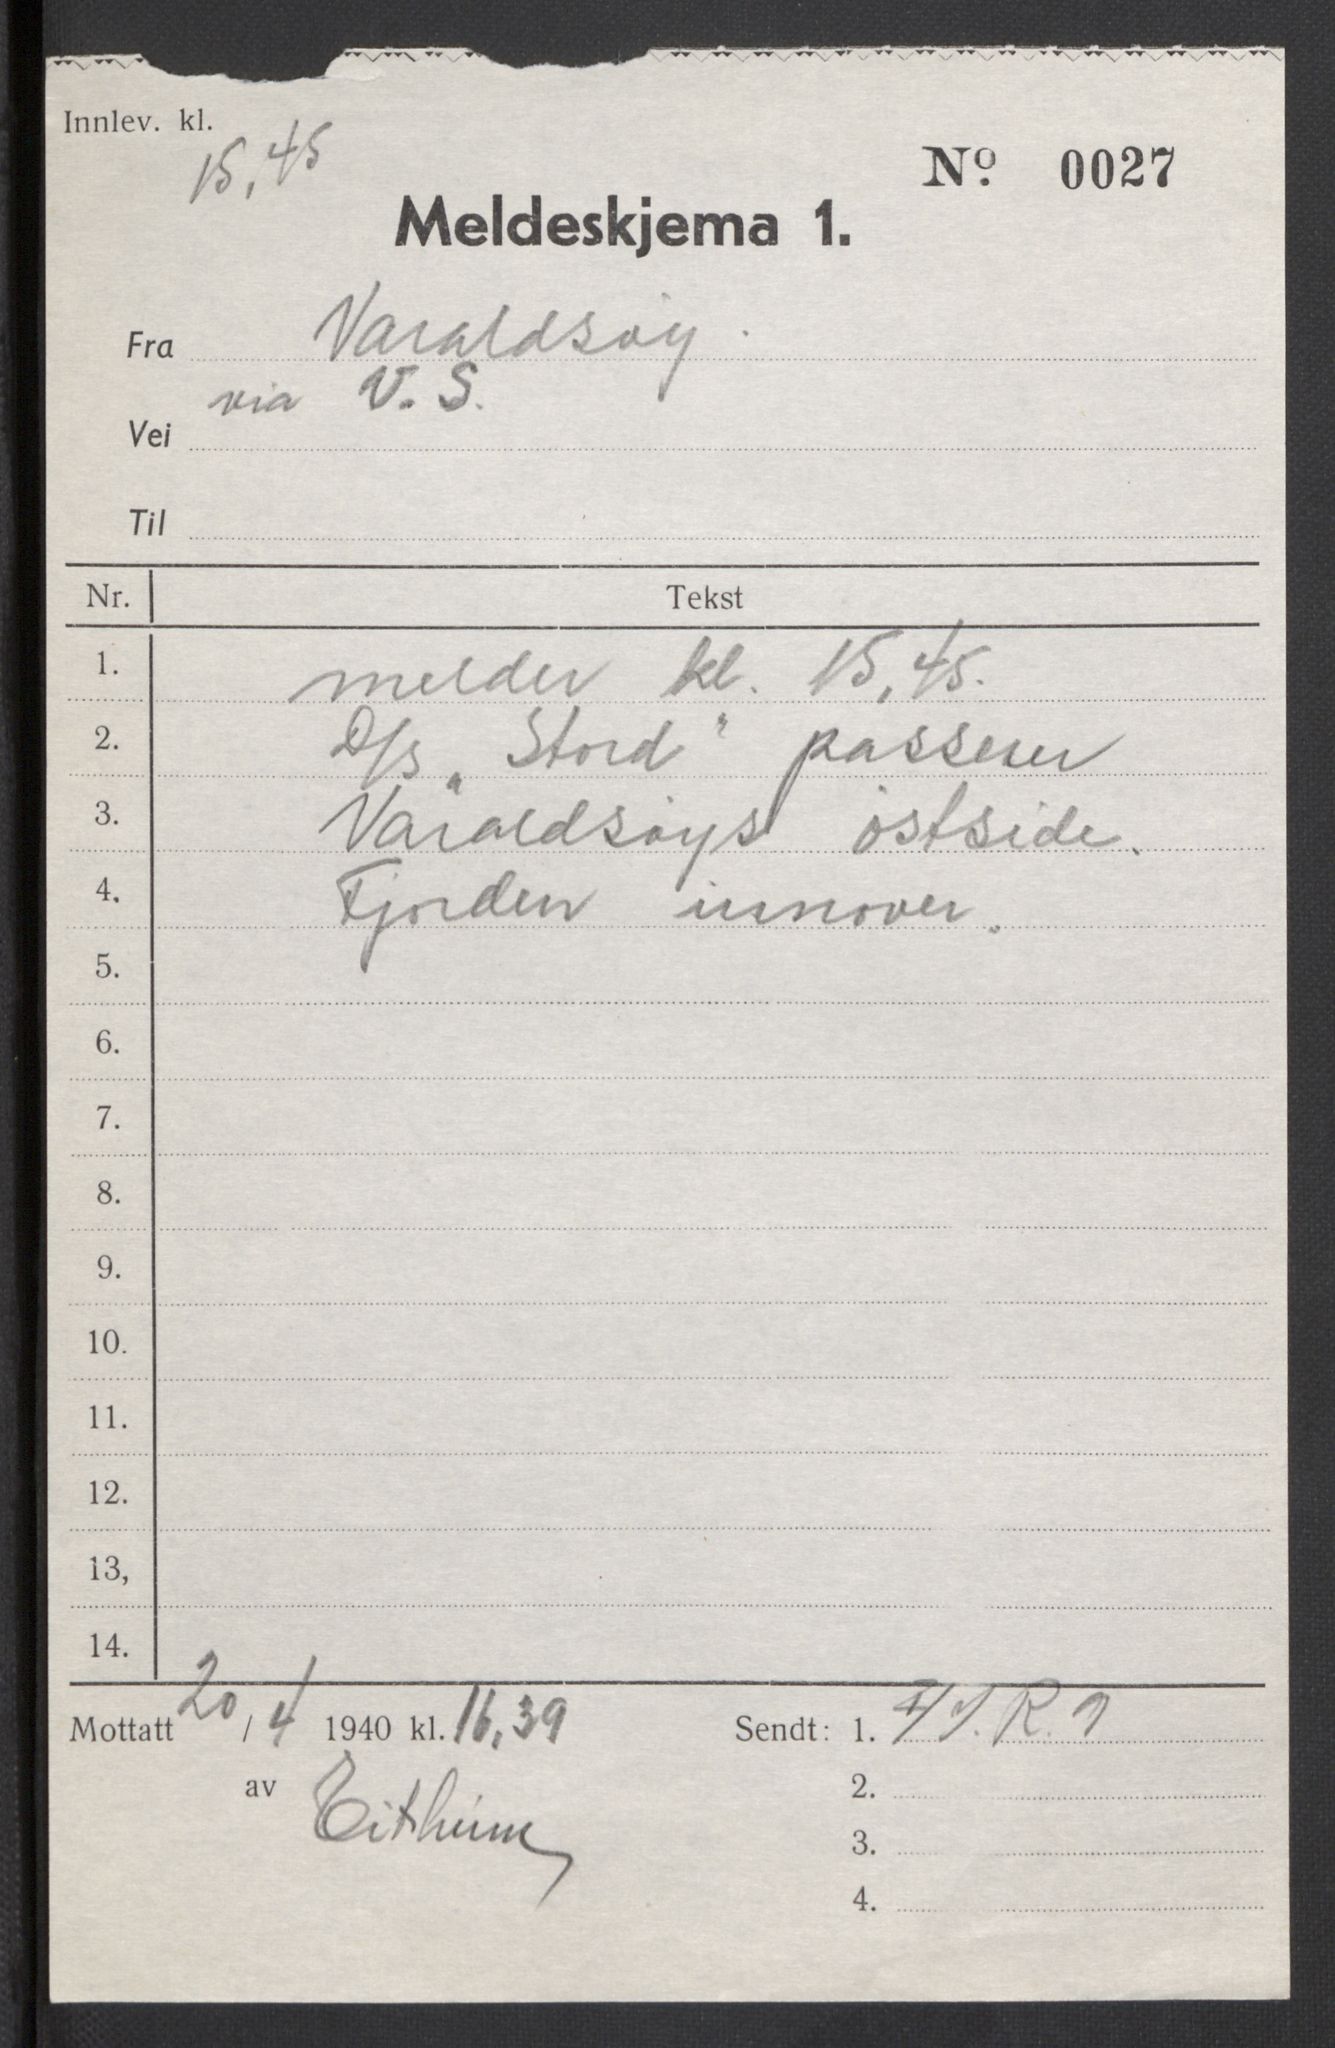 Innlev. kl.
15,45
No. 0027
Meldeskjema 1.
Fra Varaldsöy.
via V. S.
Vei
Til
Nr. Tekst
1. melder kl. 15,45.
2. D/s „Stord" passerer
3. Varaldsöys östside.
4. Fjorden innover.
5.
6.
7.
8.
9.
10.
11.
12.
13,
14.
Mottatt 20/4 1940 kl. 16,39
Sendt: 1. R.
av Eitheim
2.
3.
4.